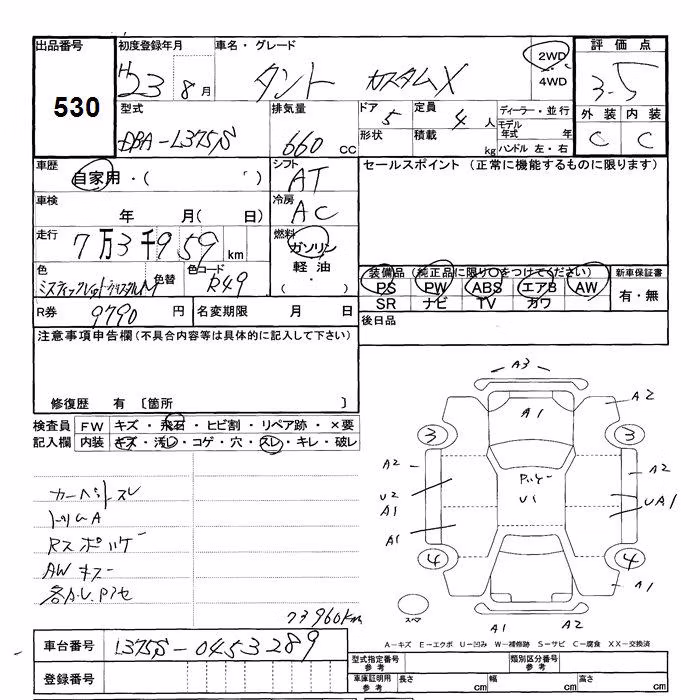 出品番号 初度登録年月 車名・グレード 評価点
530
H23 8月 タント カスタムX 2WD・4WD 3.5
外装 内装
C C
型式 排気量 ドア 定員 ディーラー・並行
DBA-L375S 660CC 5 4人 モデル年式 年
形状 積載 kg ハンドル 左・右
車歴 シフト セールスポイント (正常に機能するものに限ります)
自家用・( ) AT
車検 冷房
年 月( 日) AC
走行 燃料
7万3千959km ガソリン
軽油
色 色替 色コード 装備品(純正品に限り○をつけてください) 新車保証書
R49 PS PW ABS エアB AW 有・無
SR ナビ TV カワ
R券 9790円 名変期限 月 日 後日品
注意事項申告欄(不具合内容等は具体的に記入して下さい)
修復歴 有 〔箇所 〕
検査員記入欄 FW キズ・飛石・ヒビ割・リペア跡・×要
内装 キズ・汚レ・コゲ・穴・スレ・キレ・破レ
カーペットスレ
トリムA
AWキズ
73960km
A3
A1
A2
3 3
A2 A2
U2 U1 UA1
A1
A1
4 4
A1
スペア
A1 A2
A-キズ E-エクボ U-凹み W-補修跡 S-サビ C-腐食 XX-交換済
車台番号 L375S-0453289
型式指定番号 参考 類別区分番号 参考
登録番号
車庫証明用 参考 長さ cm 幅 cm 高さ cm